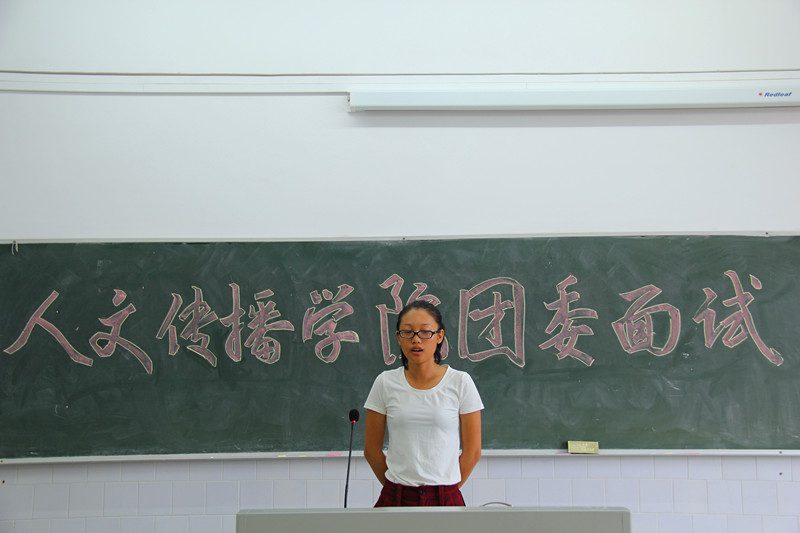 Redleaf
人文传播学院团委面试